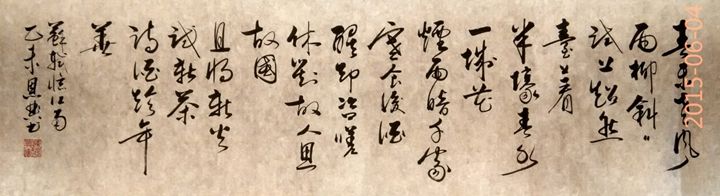 春未老風
柳斜〻
試上超然
臺上看
半壕春水
一城花
煙雨暗千家
寒食後酒
醒却咨嗟
休對故人思
故國
且將新火
試新茶
詩酒趁年
華
蘇軾憶江南
乙未
2015-06-04